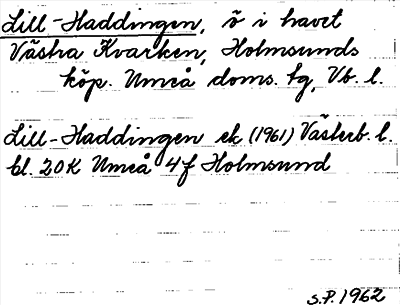 Lill-Haddingen, ö i havet
Västra Kvarken, Holmsunds
köp. Umeå doms. tg, Vb. l.
Lill-Haddingen ek (1961) Västerb. l.
bl. 20K Umeå 4f Holmsund
S.P. 1962